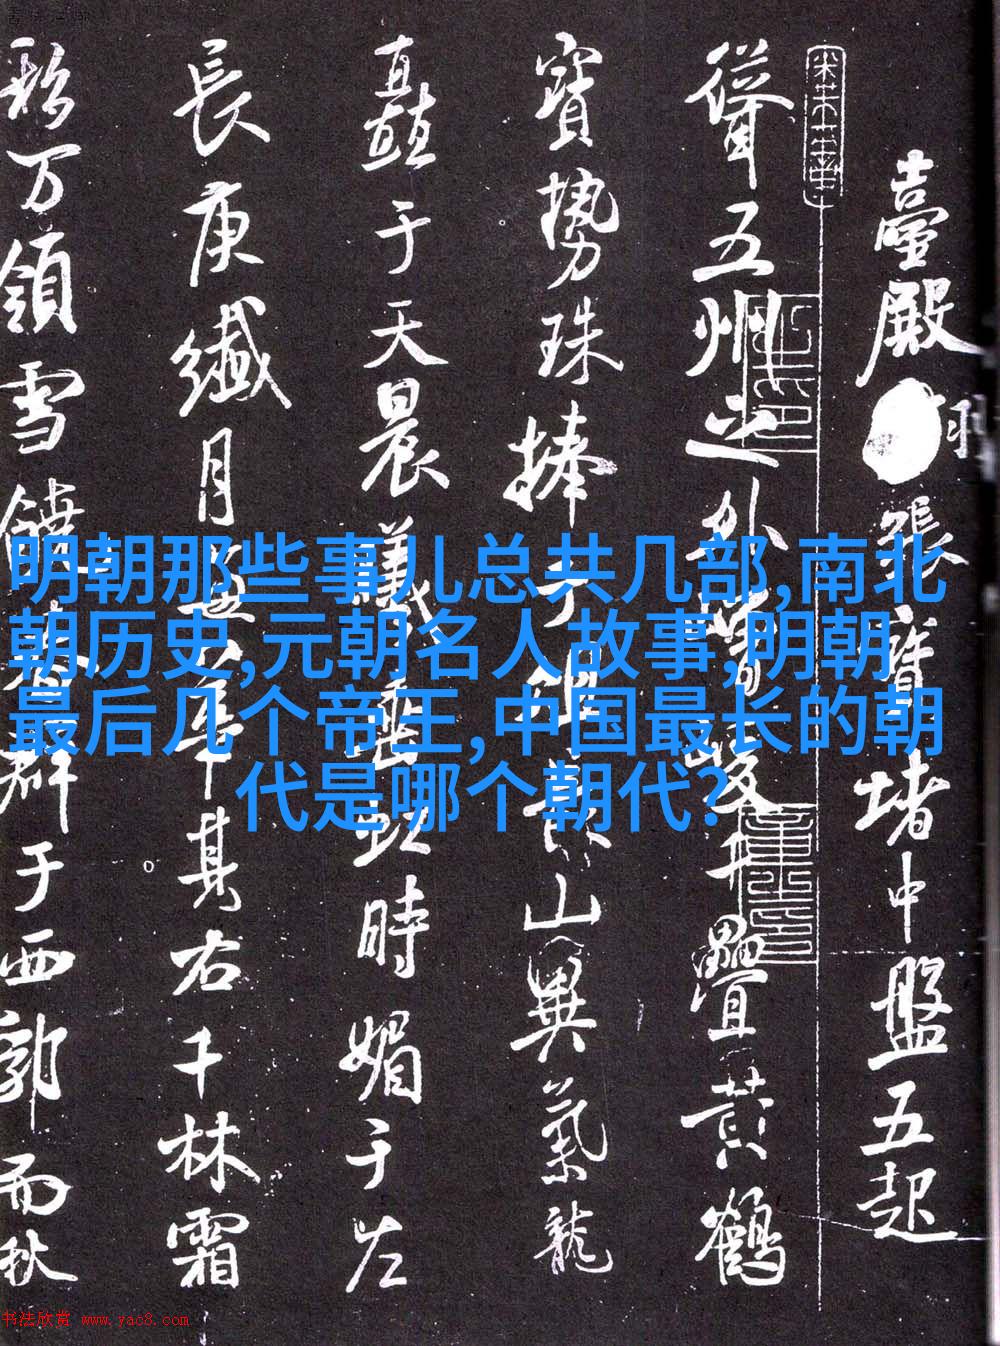 明朝那些事儿总共几部,南北
朝历史,元朝名人故事,明朝
最后几个帝王,中国最长的朝
代是哪个朝代?
臺殿張寶堵中盤五起
聳五州之外疊黃鶴
寶勢珠捧于山異氣龍
矗于天晨時媚于左
長庚纖月其右千林霜
彩万領雪饒群于西郭而秋
书法欣赏 www.yac8.com